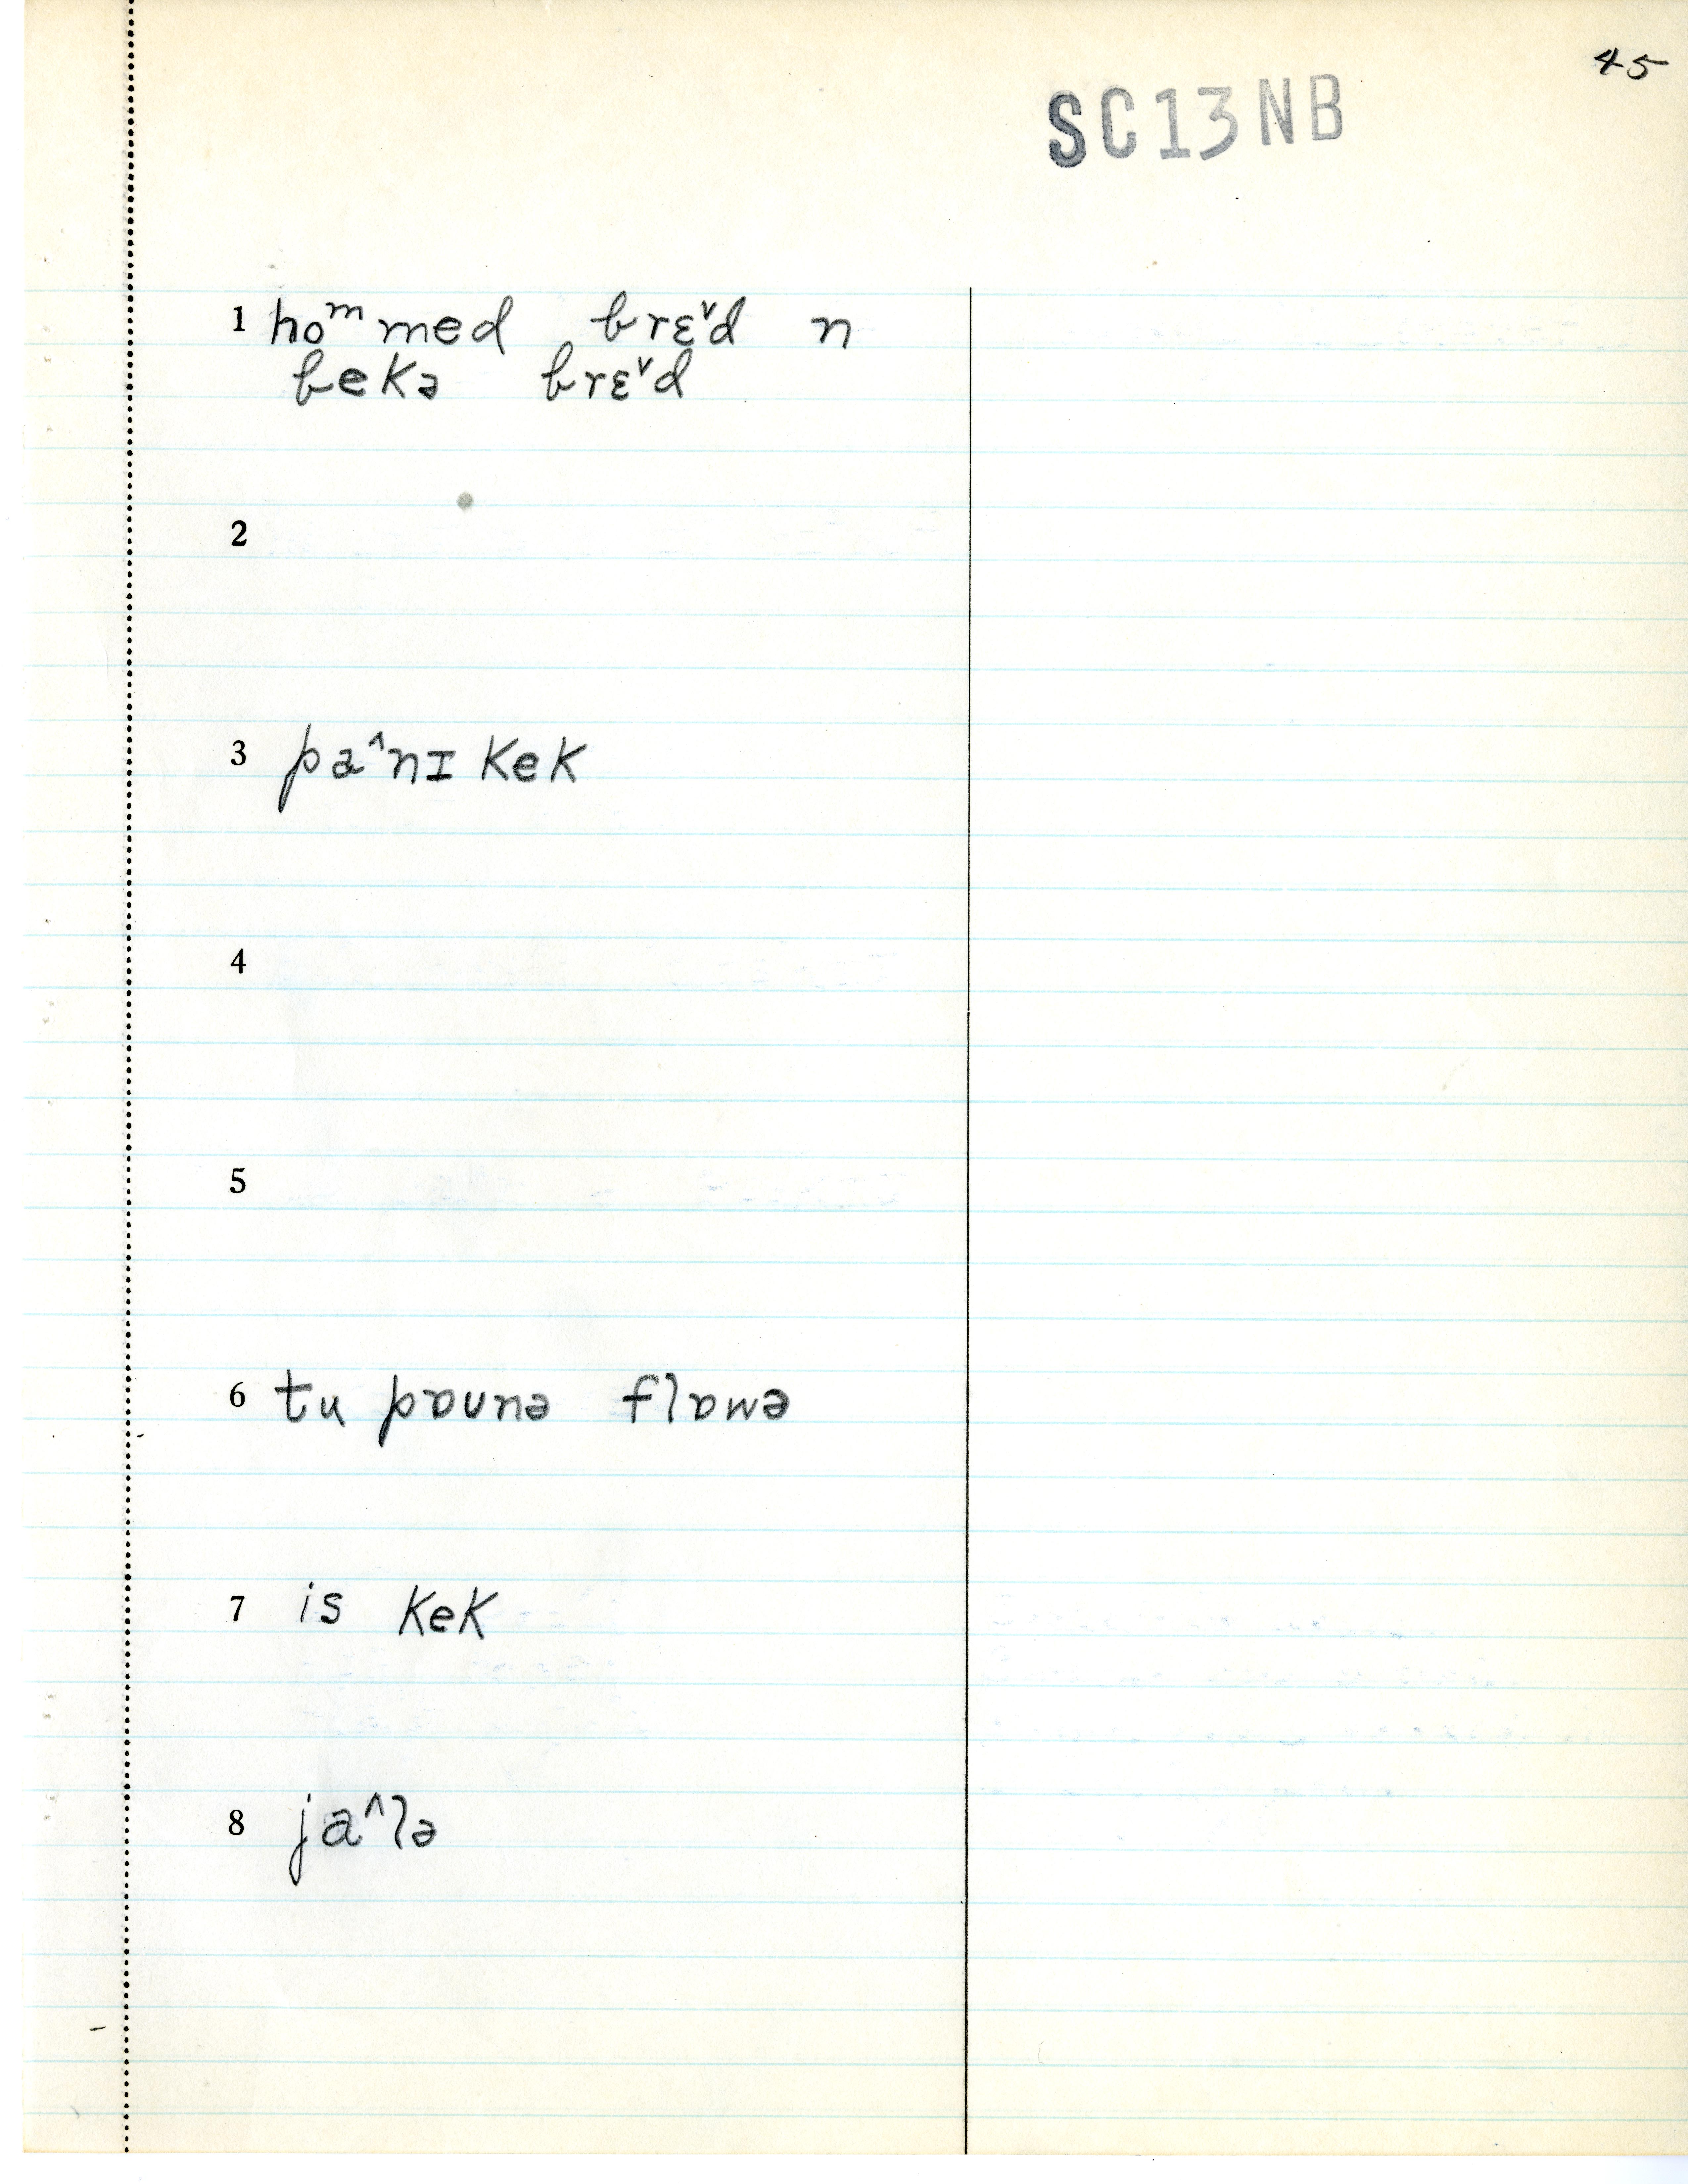 45
SC13NB
1 hoᵐmed brɛ˅d n
bekə brɛ˅d
2
3 pa^nɪ kek
4
5
6 tu pɒunə flɒwə
7 is kek
8 ja^lə